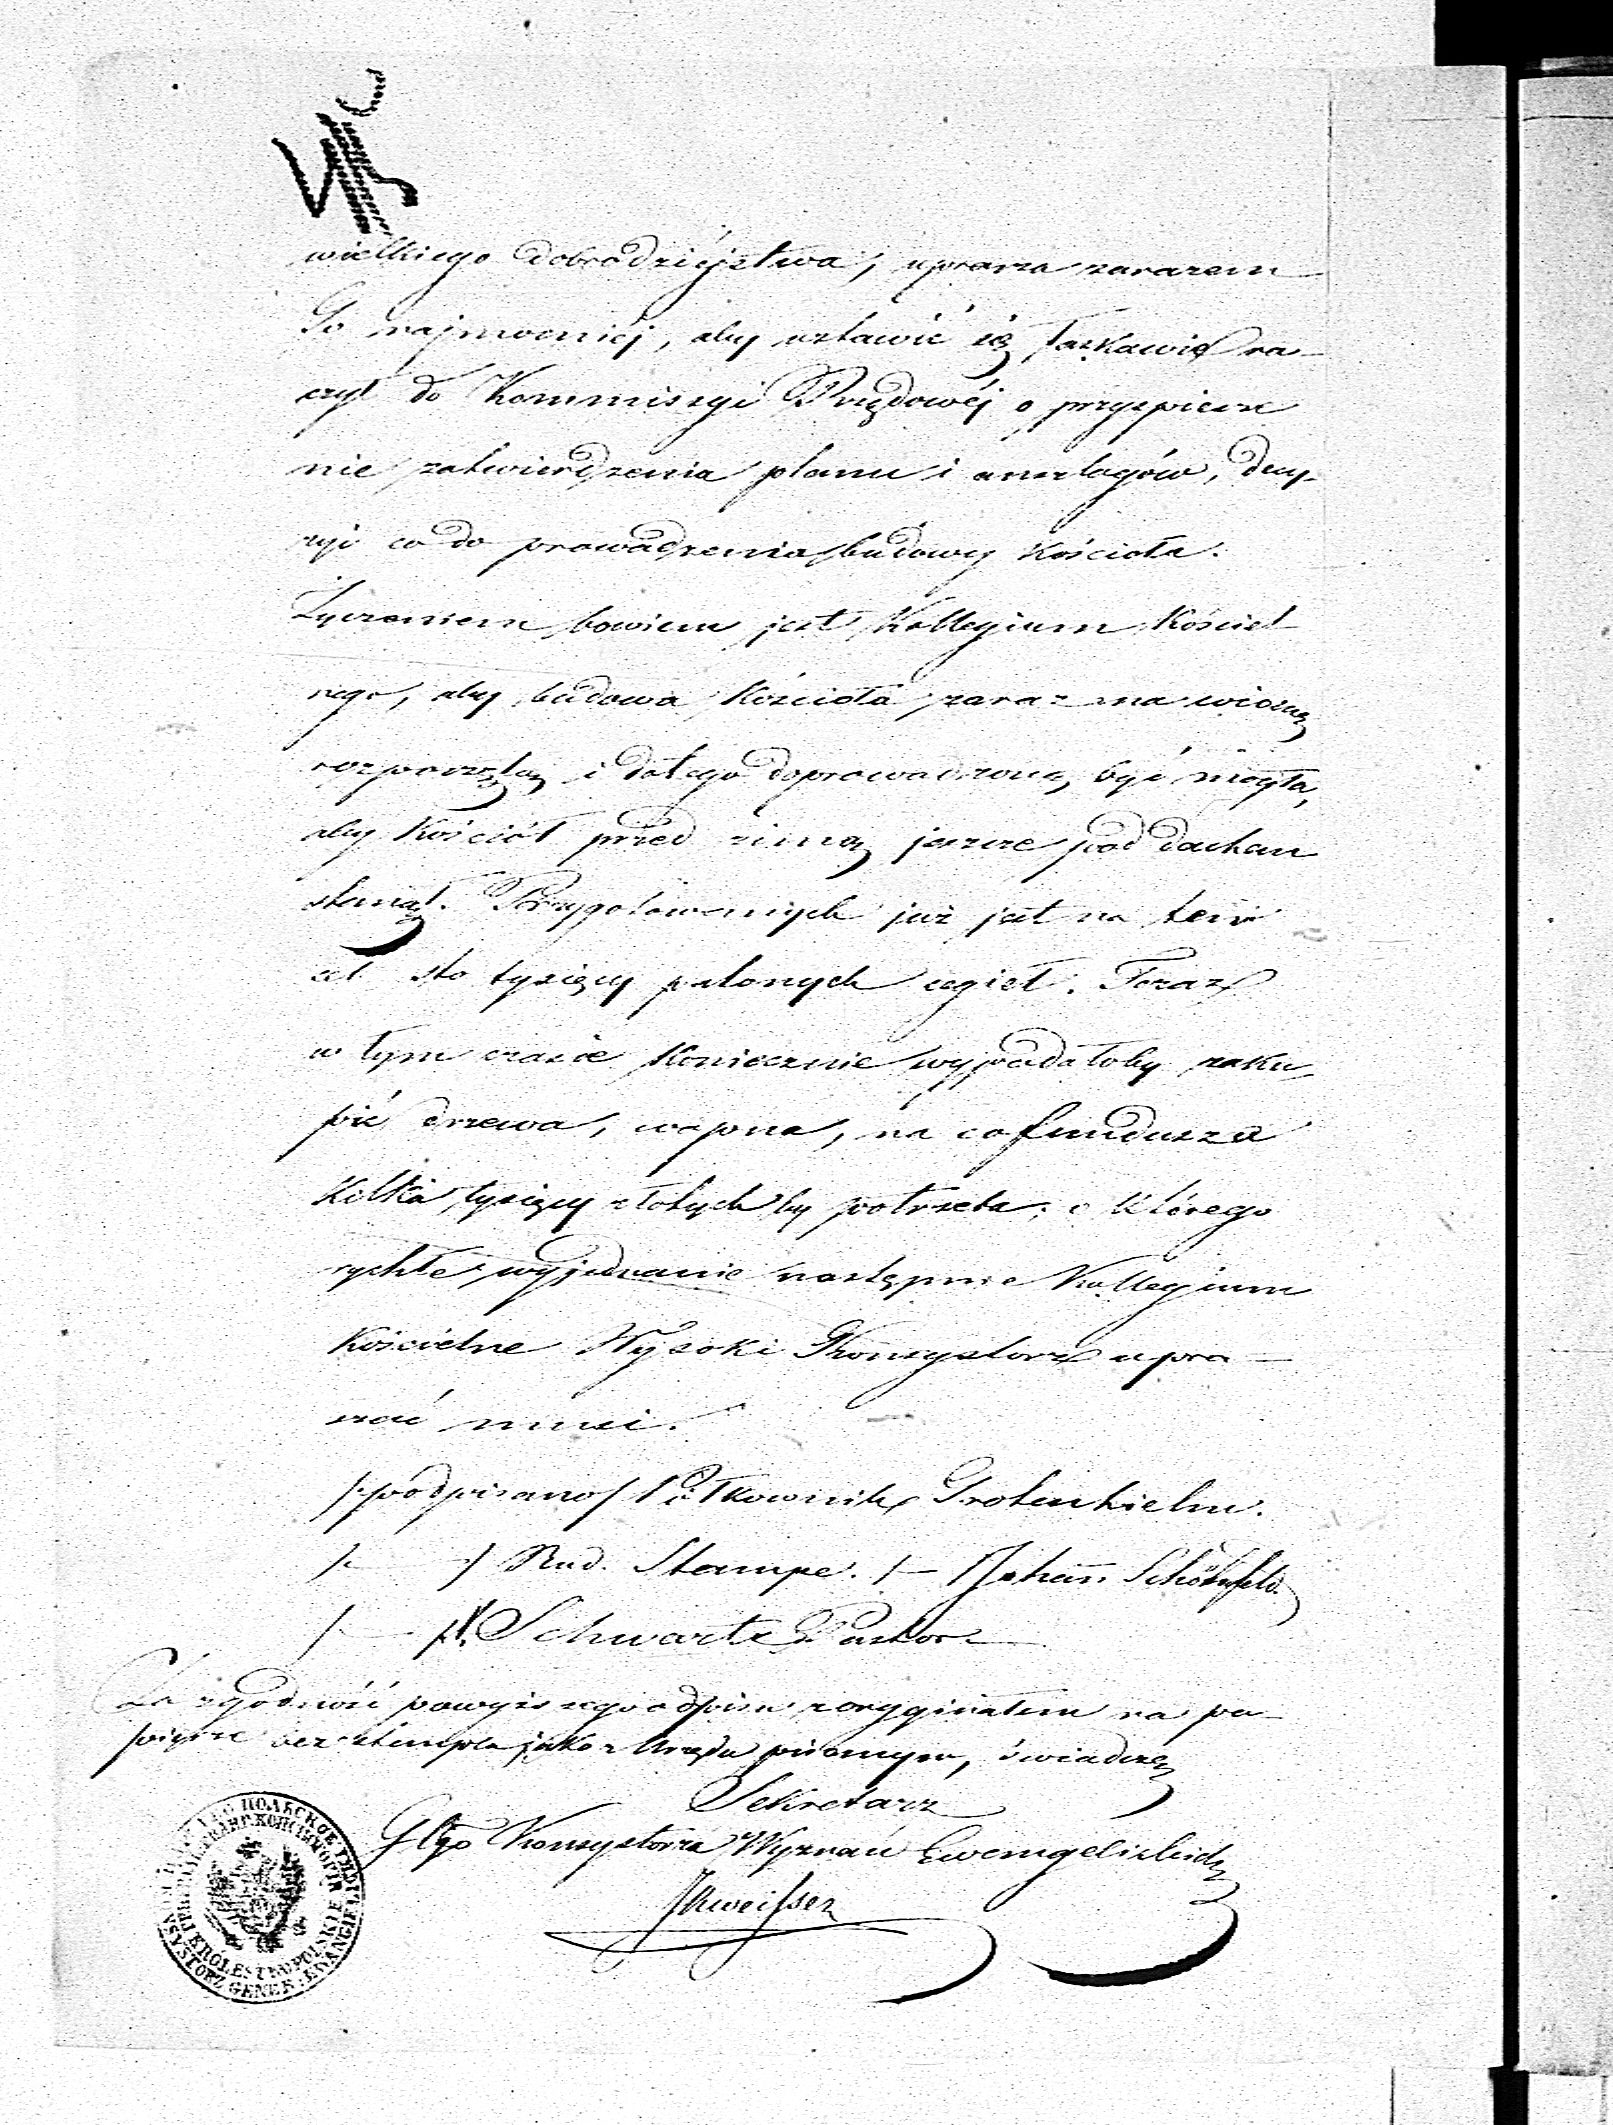 wielkiego dobrodziéystwa, uprasza zarazem
Go najmocniéj, aby wstawić się łaskawie ra-
czył do Kommissyi Rządowéj o przyspiesze
nie zatwierdzenia planu i anszlagów, decy-
zyi co do prowadzenia budowy Kościoła.
Życzeniem bowiem jest Kollegium Kościel
nego, aby budowa Kościoła zaraz na wiosnę
rozpoczętą i do tego doprowadzoną być mogła,
aby Kościół przed zimą jeszcze pod dachem
stanął. Przygotowanych już jest na ten
cel sto tysięcy palonych cegieł. Teraz
w tym czasie koniecznie wypadałoby zaku-
pić drzewa, wapna, na co funduszu
kilka tysięcy złotych by potrzeba, o którego
rychłe wyjednanie następnie Kollegium
Kościelne Wysoki Konsystorz upra-
szać musi.
/:podpisano/ Półkownik Grotenhielm.
/: :/ Rud. Stampe. /— Johañ Schönfeld.
/: Schwartz Pastor
Za zgodność powyższego odpisu z oryginałem na pa-
pierze bez stempla jako z Urzędu pisanym, świadczę
Sekretarz
Głgo Konsystorza Wyznań Ewangelickich